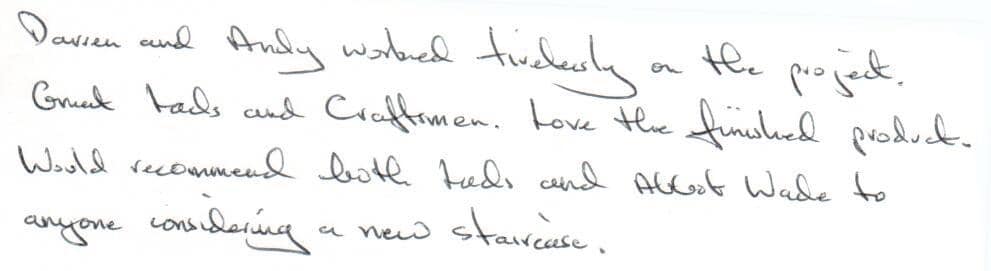 Darren and Andy worked tirelessly on the project.
Great lads and Craftsmen. Love the finished product.
Would recommend both lads and Abbot Wade to
anyone considering a new staircase.